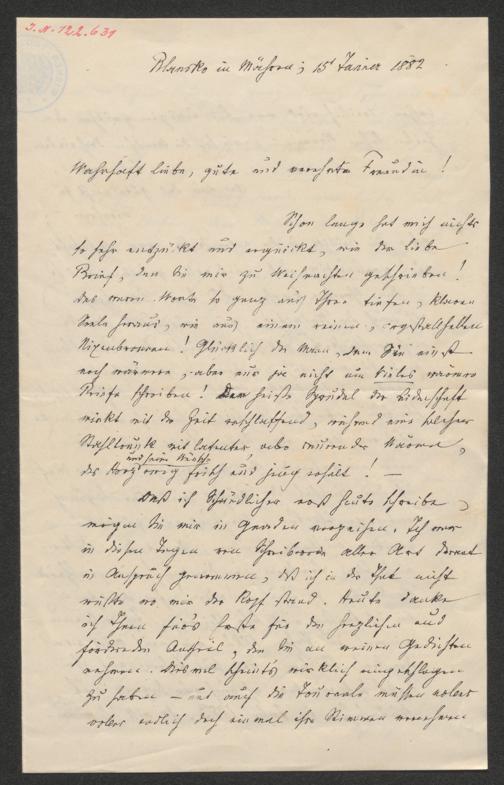 J.N. 122.631
Blansko in Mähren; 15t Jänner 1882
Wahrhaft liebe, gute und verehrte Freundin!
Schon lange hat mich nichts
so sehr entzückt und erquickt, wie der liebe
Brief, den Sie mir zu Weihnachten geschrieben!
Das waren Worte so ganz aus Ihrer tiefen, klaren
Seele heraus, wie aus einem reinen, krystallhellen
Nixenbronnen! Glücklich der Mann, dem Sie einst
noch wärmere, aber nur ja nicht um vieles wärmere
Briefe schreiben! Der heiße Sprudel der Leidenschaft
wirkt mit der Zeit erschlaffend, während ein solcher
Stahltrunk mit latenter, aber Wärme,
das Herz und seine Wünsche ewig frisch und jung erhält! —
Daß ich Schändlicher erst heute schreibe,
mögen Sie mir in Gnaden verzeihen. Ich war
in diesen Tagen von Schreibereien aller Art derart
in Anspruch genommen, daß ich in der That nicht
wußte wo mir der Kopf stand. Heute danke
ich Ihnen für's Erste für den herzlichen und
fördernden Antheil, den Sie an meinen Gedichten
nehmen. Diesmal scheint's wirklich eingeschlagen
zu haben — und auch die Journale müssen
endlich doch einmal ihre Stimmen vernehmen